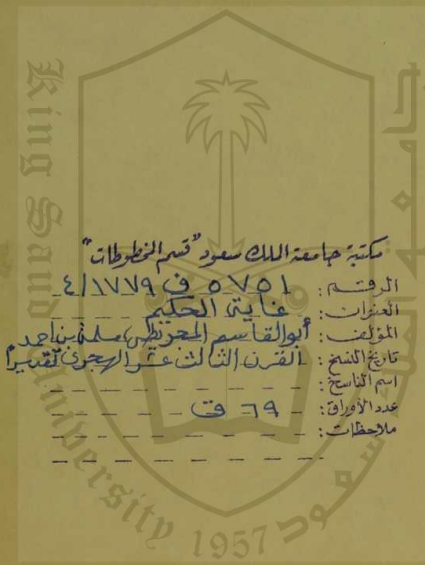 مكتبة جامعة الملك سعود "قسم المخطوطات"
الرقم: ٥٧٥١ ف ١٧٧٩/٤
العنوان: غاية الحكيم
المؤلف: أبو القاسم المجريطي، مسلمة بن احمد
تاريخ النسخ: القرن الثالث عشر الهجري تقديرا
اسم الناسخ:
عدد الأوراق: ٦٩ ق
ملاحظات:
King Saud University
1957